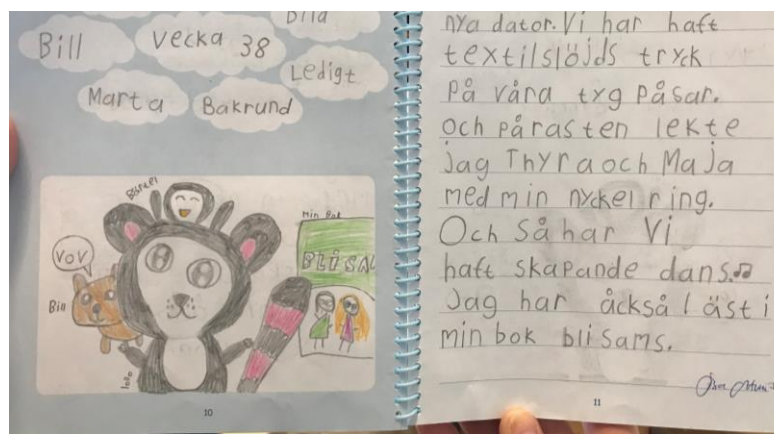 Bill
Vecka 38
Ledigt
Marta
Bakrund
Min Bok
BLISA
VOV
Bill
10
nya dator. Vi har haft
textilslöjds tryck
På våra tyg påsar.
Och på rasten lekte
jag Thyra och Maja
med min nyckel ring.
Och Så har Vi
haft skapande dans.
Jag har åckså läst i
min bok bli sams.
11